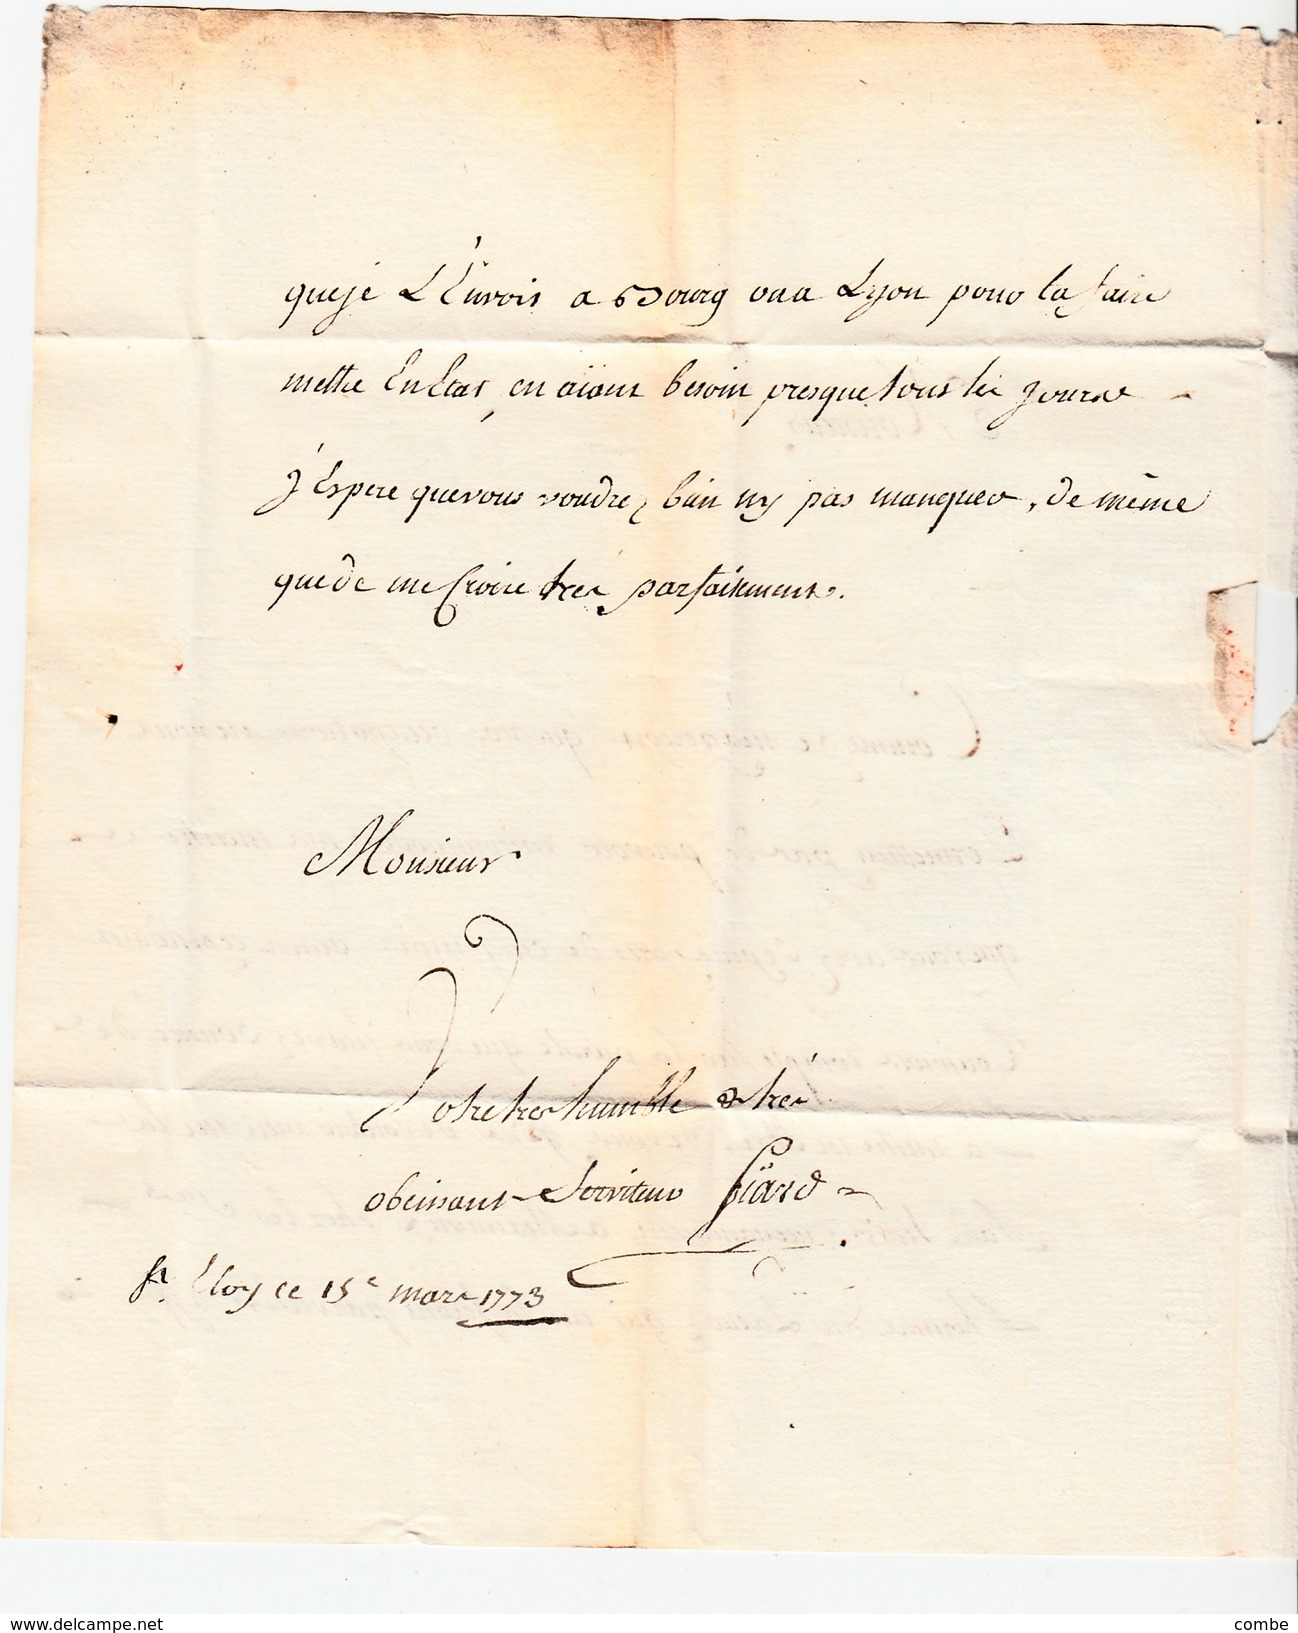 que je L'Envois a Bourg ou a Lyon pour la faire
mettre En Etat, en aïant besoin presque tous les jours
J'Espere que vous voudrez bien ny pas manquer, de même
que de me Croire tres parfaitement.
Monsieur
Votre tres humble & tres
obeissant Serviteur
St. Eloy ce 15e mars 1773
delcampe.net
combe